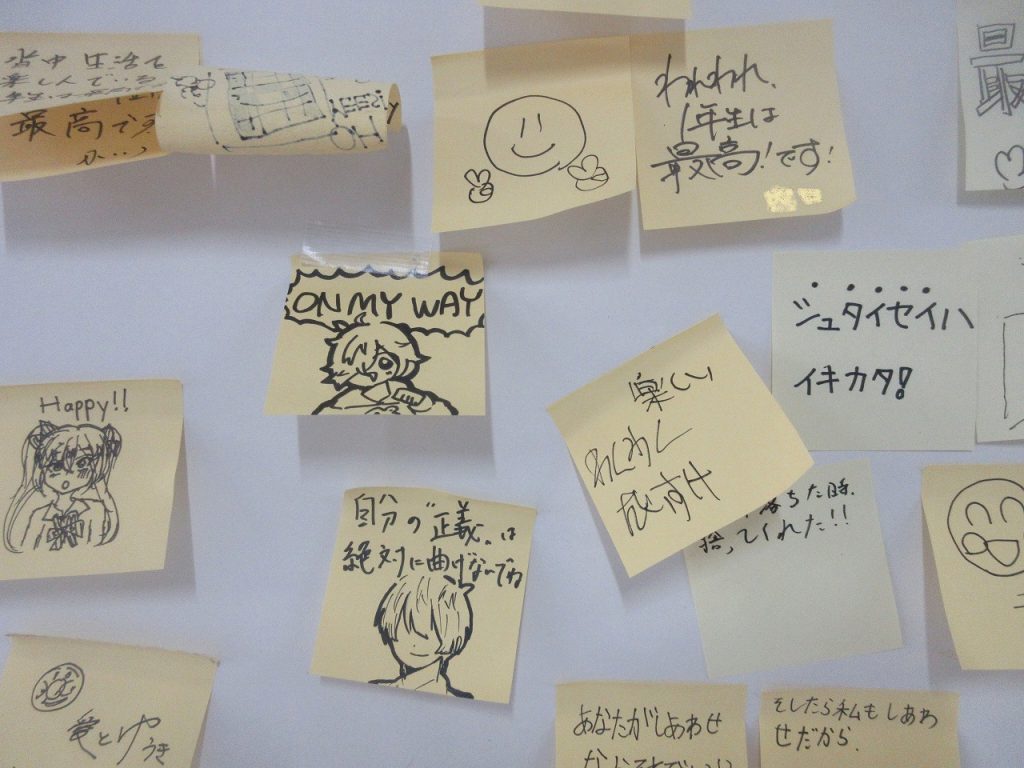 最高です
か…、
われわれ、
1年生は
最高!です!
最
ON MY WAY
ジュタイセイハ
イキカタ!
Happy!!
楽しい
わくわく
自分の"正義"は
絶対に曲げないでね
落ちた時、
捨ってくれた!!
愛とゆ
うき
あなたがしあわせ
ならそれでいい
そしたら私もしあわ
せだから、